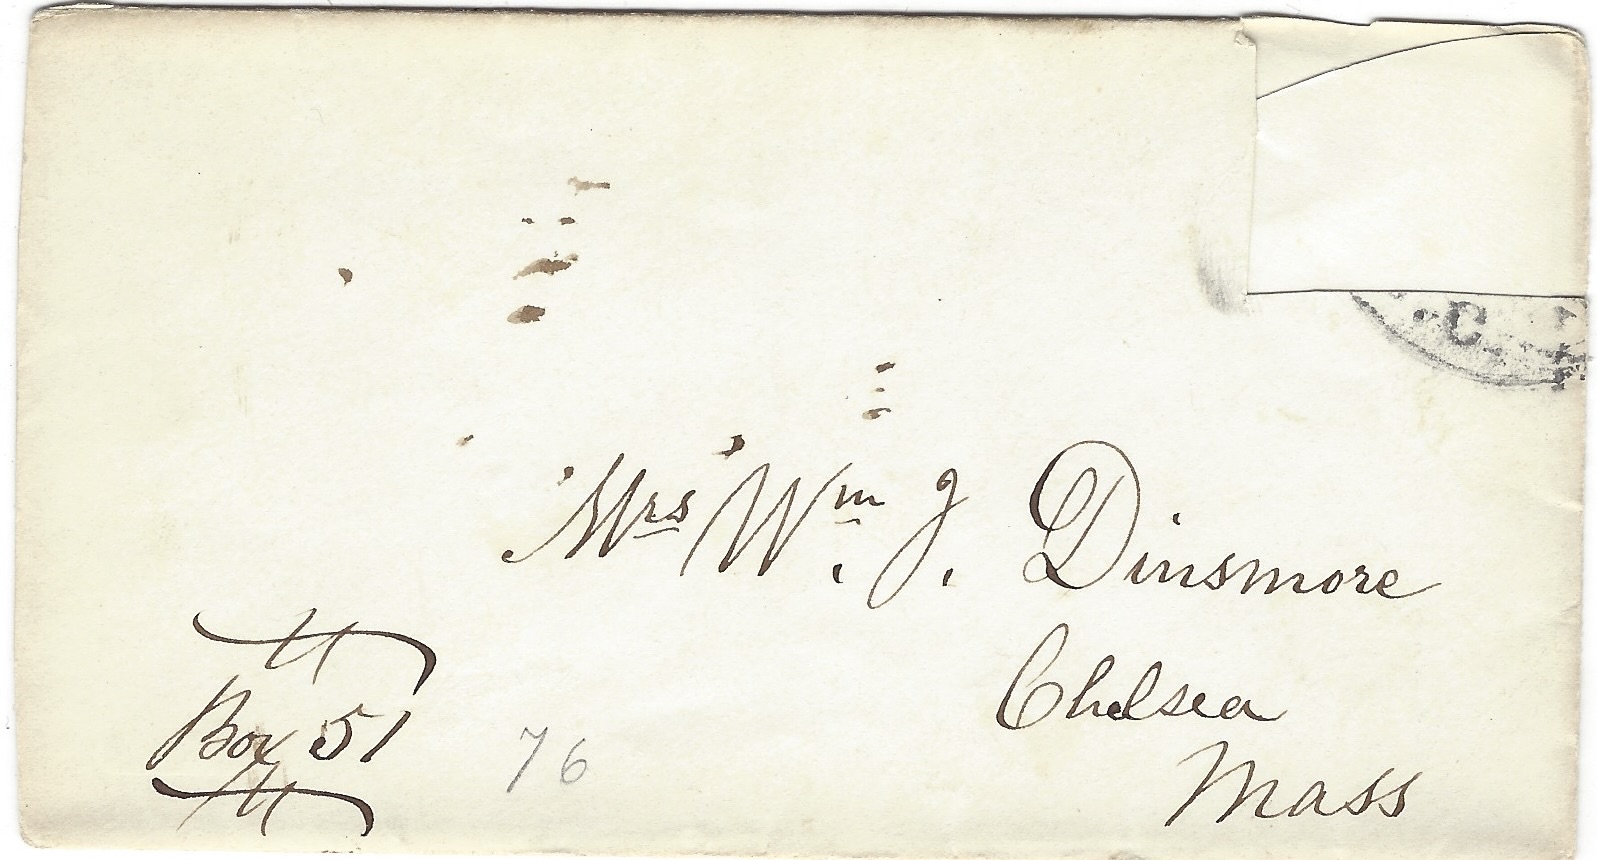 C.
Mrs Wm. J. Dinsmore
Chelsea
Mass
Box 51
76